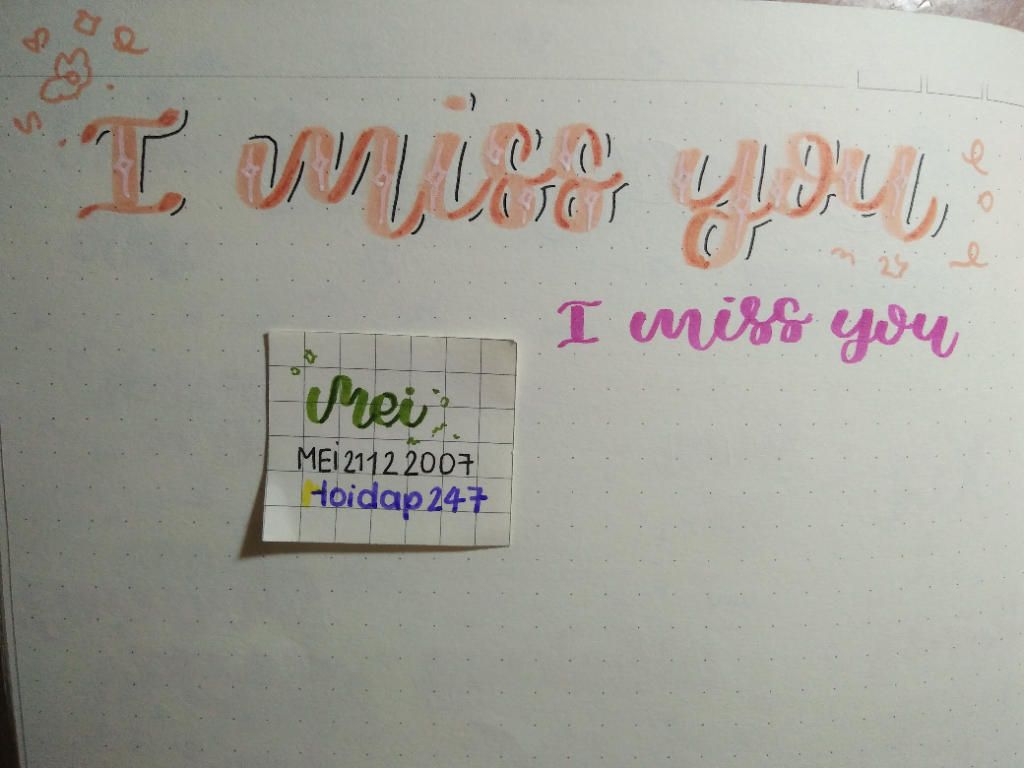 I miss you
I miss you
Mei
MEi 21 12 2007
Hoidap247